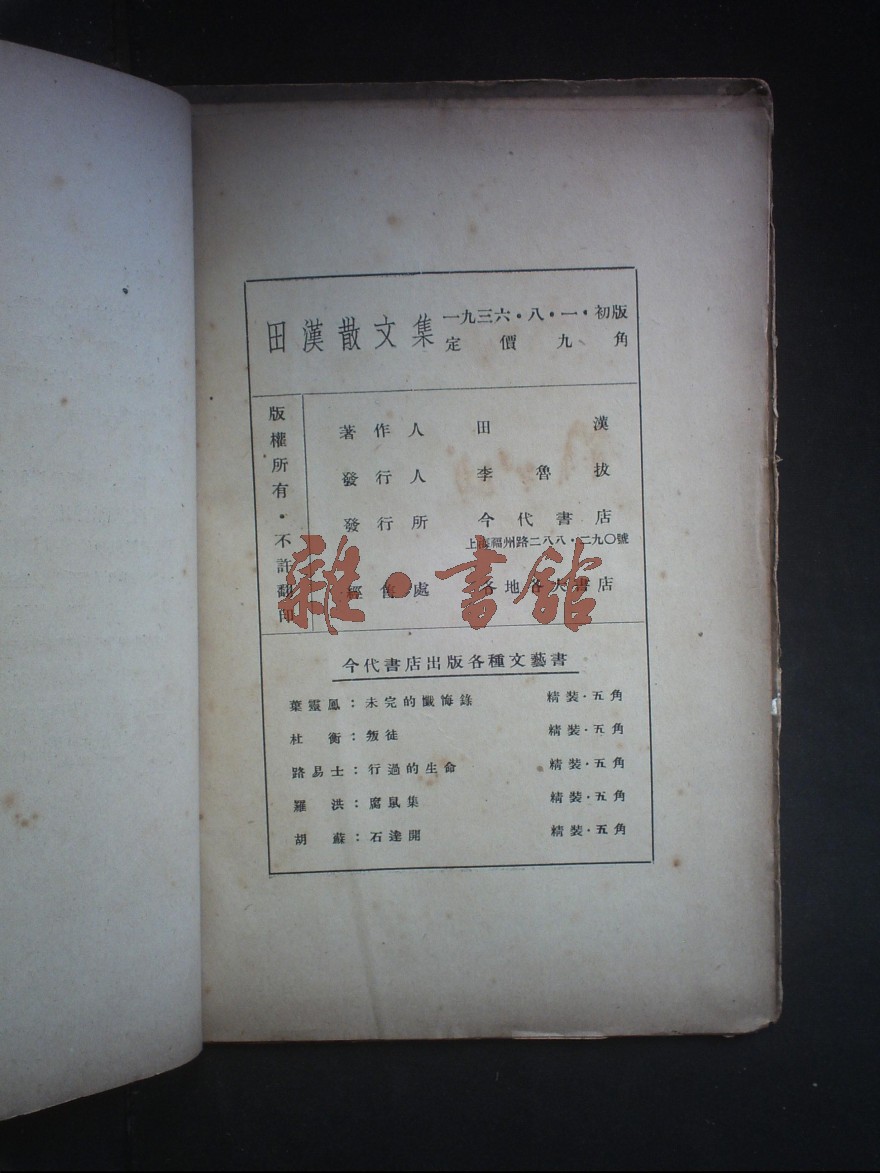 田漢散文集
一九三六・八・一・初版
定價九角
版權所有・不許翻印
著作人 田漢
發行人 李魯拔
發行所 今代書店
上海福州路二八八・二九〇號
經售處 各地各大書店
雜・書館
今代書店出版各種文藝書
葉靈鳳:未完的懺悔錄 精裝・五角
杜衡:叛徒 精裝・五角
路易士:行過的生命 精裝・五角
羅洪:腐鼠集 精裝・五角
胡蘇:石達開 精裝・五角